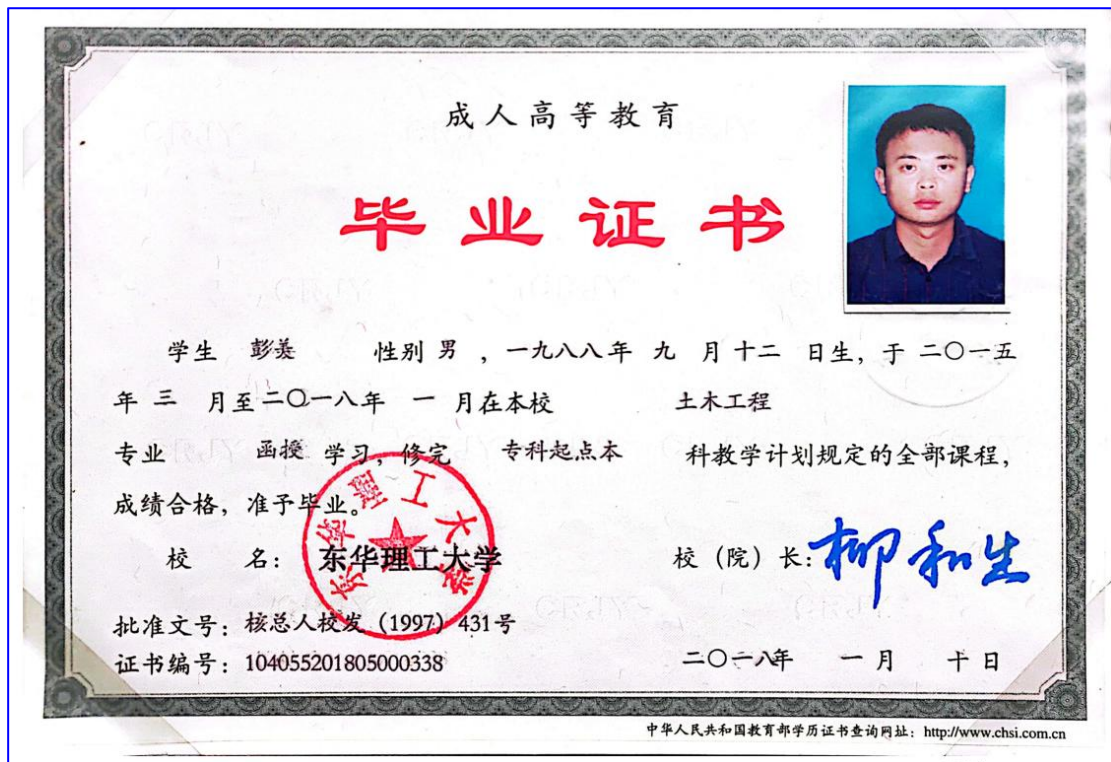 成人高等教育
毕业证书
学生 彭羡 性别 男 ，一九八八年 九 月十二 日生，于 二〇一五
年 三 月至二〇一八年 一 月在本校 土木工程
专业 函授 学习，修完 专科起点本 科教学计划规定的全部课程，
成绩合格，准予毕业。
校 名：东华理工大学
东华理工大学
校（院）长：柳和生
批准文号：核总人校发（1997）431号
证书编号：104055201805000338
二〇一八年 一月 十日
中华人民共和国教育部学历证书查询网址：http://www.chsi.com.cn